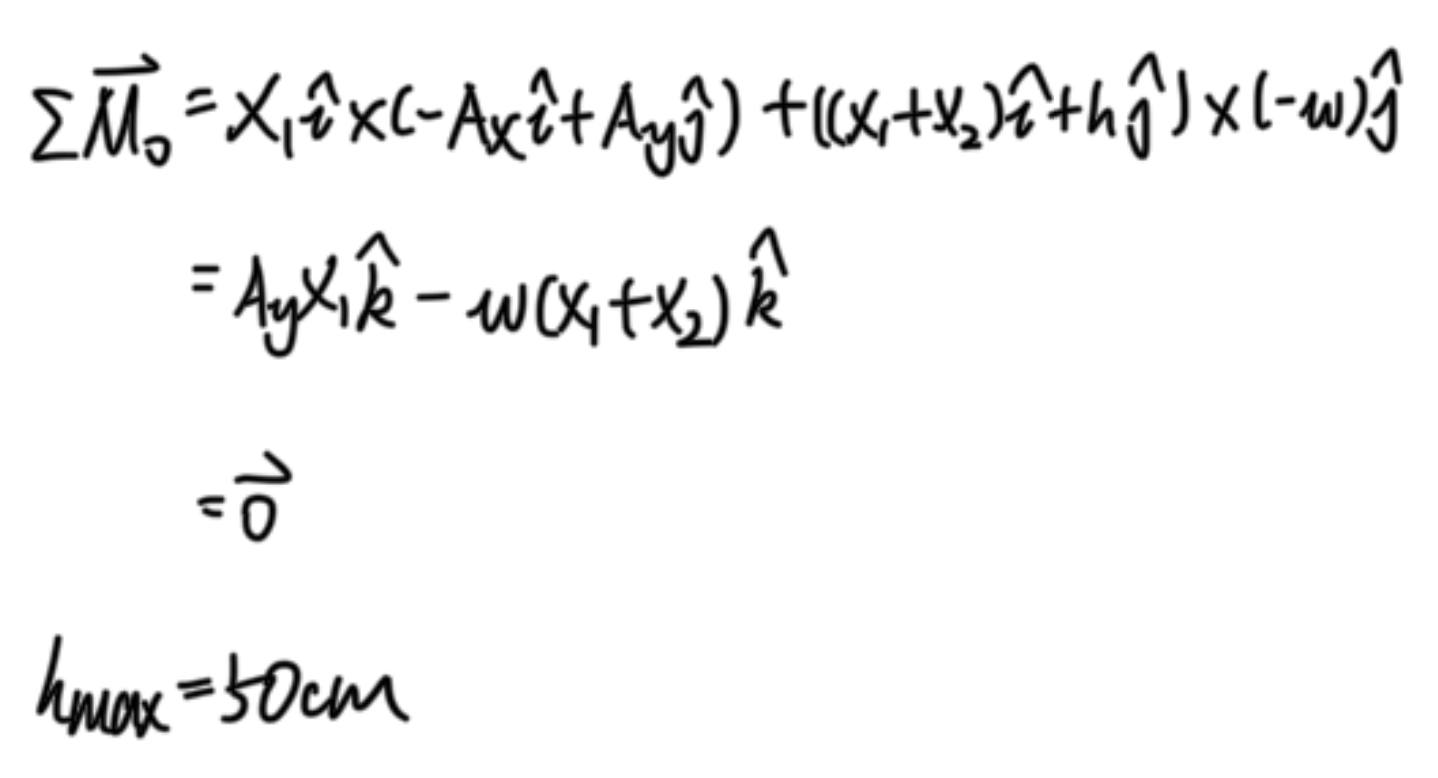 $\sum \vec{M}_0 = x_1 \hat{i} \times (-A_x \hat{i} + A_y \hat{j}) + ((x_1 + x_2) \hat{i} + h \hat{j}) \times (-w) \hat{j}$
$= A_y x_1 \hat{k} - w(x_1 + x_2) \hat{k}$
$= \vec{0}$
$h_{max} = 50cm$